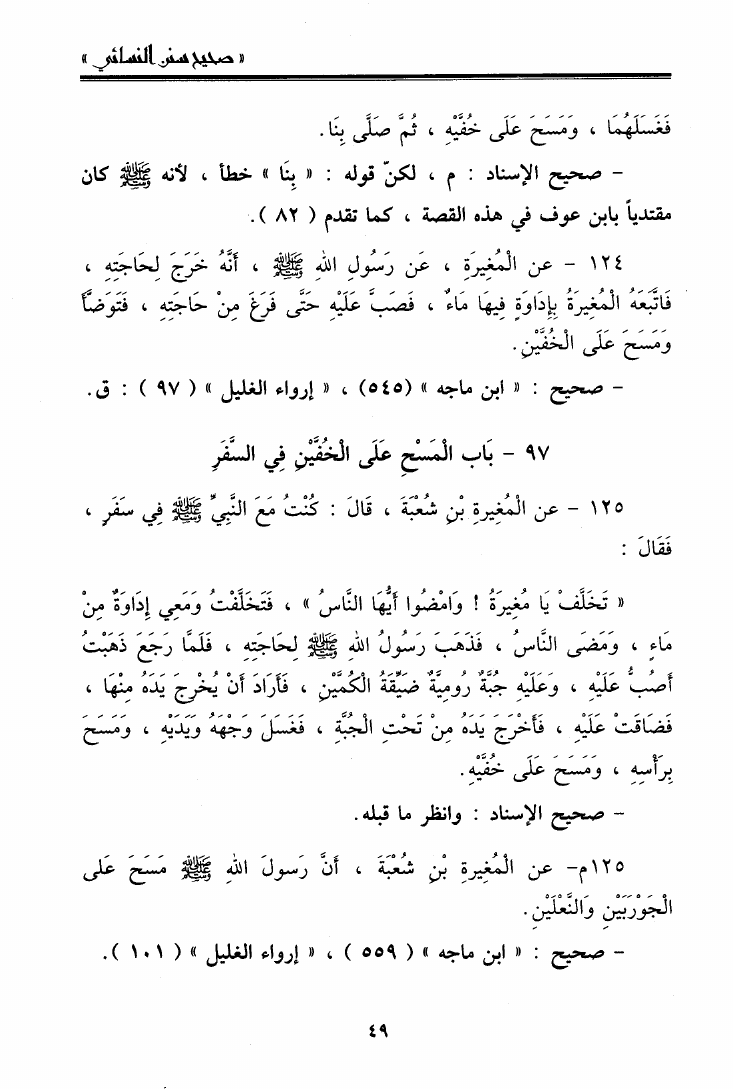 « صحيح سنن النسائي »
فَغَسَلَهُمَا ، وَمَسَحَ عَلَى خُفَّيْهِ ، ثُمَّ صَلَّى بِنَا.
– صحيح الإسناد : م ، لكنّ قوله : « بِنَا » خطأ ، لأنه ﷺ كان
مقتدياً بابن عوف في هذه القصة ، كما تقدم ( ٨٢ ).
١٢٤ – عن الْمُغِيرَةِ ، عَن رَسُولِ اللهِ ﷺ ، أَنَّهُ خَرَجَ لِحَاجَتِهِ ،
فَاتَّبَعَهُ الْمُغِيرَةُ بِإِدَاوَةٍ فِيهَا مَاءٌ ، فَصَبَّ عَلَيْهِ حَتَّى فَرَغَ مِنْ حَاجَتِهِ ، فَتَوَضَّأَ
وَمَسَحَ عَلَى الْخُفَّيْنِ.
– صحيح : « ابن ماجه » (٥٤٥) ، « إرواء الغليل » ( ٩٧ ) : ق.
٩٧ – بَاب الْمَسْحِ عَلَى الْخُفَّيْنِ فِي السَّفَرِ
١٢٥ – عن الْمُغِيرةِ بْنِ شُعْبَةَ ، قَالَ : كُنْتُ مَعَ النَّبِيِّ ﷺ فِي سَفَرٍ ،
فَقَالَ :
« تَخَلَّفْ يَا مُغِيرَةُ ! وَامْضُوا أَيُّهَا النَّاسُ » ، فَتَخَلَّفْتُ وَمَعِي إِدَاوَةٌ مِنْ
مَاءٍ ، وَمَضَى النَّاسُ ، فَذَهَبَ رَسُولُ اللهِ ﷺ لِحَاجَتِهِ ، فَلَمَّا رَجَعَ ذَهَبْتُ
أَصُبُّ عَلَيْهِ ، وَعَلَيْهِ جُبَّةٌ رُومِيَّةٌ ضَيِّقَةُ الْكُمَّيْنِ ، فَأَرَادَ أَنْ يُخْرِجَ يَدَهُ مِنْهَا ،
فَضَاقَتْ عَلَيْهِ ، فَأَخْرَجَ يَدَهُ مِنْ تَحْتِ الْجُبَّةِ ، فَغَسَلَ وَجْهَهُ وَيَدَيْهِ ، وَمَسَحَ
بِرَأْسِهِ ، وَمَسَحَ عَلَى خُفَّيْهِ.
– صحيح الإسناد : وانظر ما قبله.
١٢٥م– عن الْمُغِيرةِ بْنِ شُعْبَةَ ، أَنَّ رَسولَ اللهِ ﷺ مَسَحَ عَلى
الْجَوْرَبَيْنِ وَالنَّعْلَيْنِ.
– صحيح : « ابن ماجه » ( ٥٥٩ ) ، « إرواء الغليل » ( ١٠١ ).
٤٩